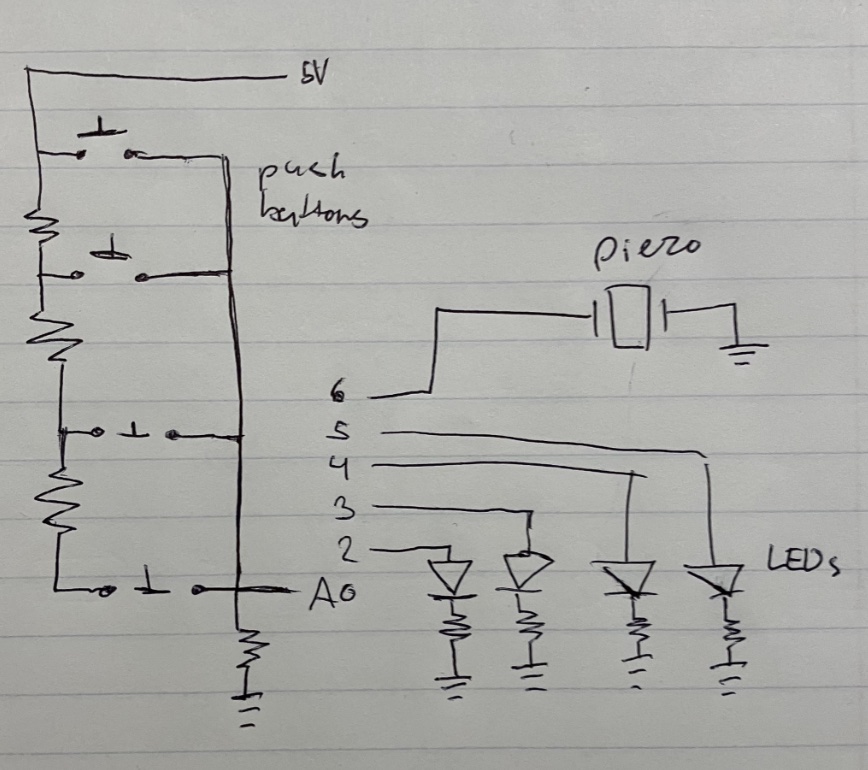 5V
push
buttons
piezo
6
5
4
3
2
LEDs
A0